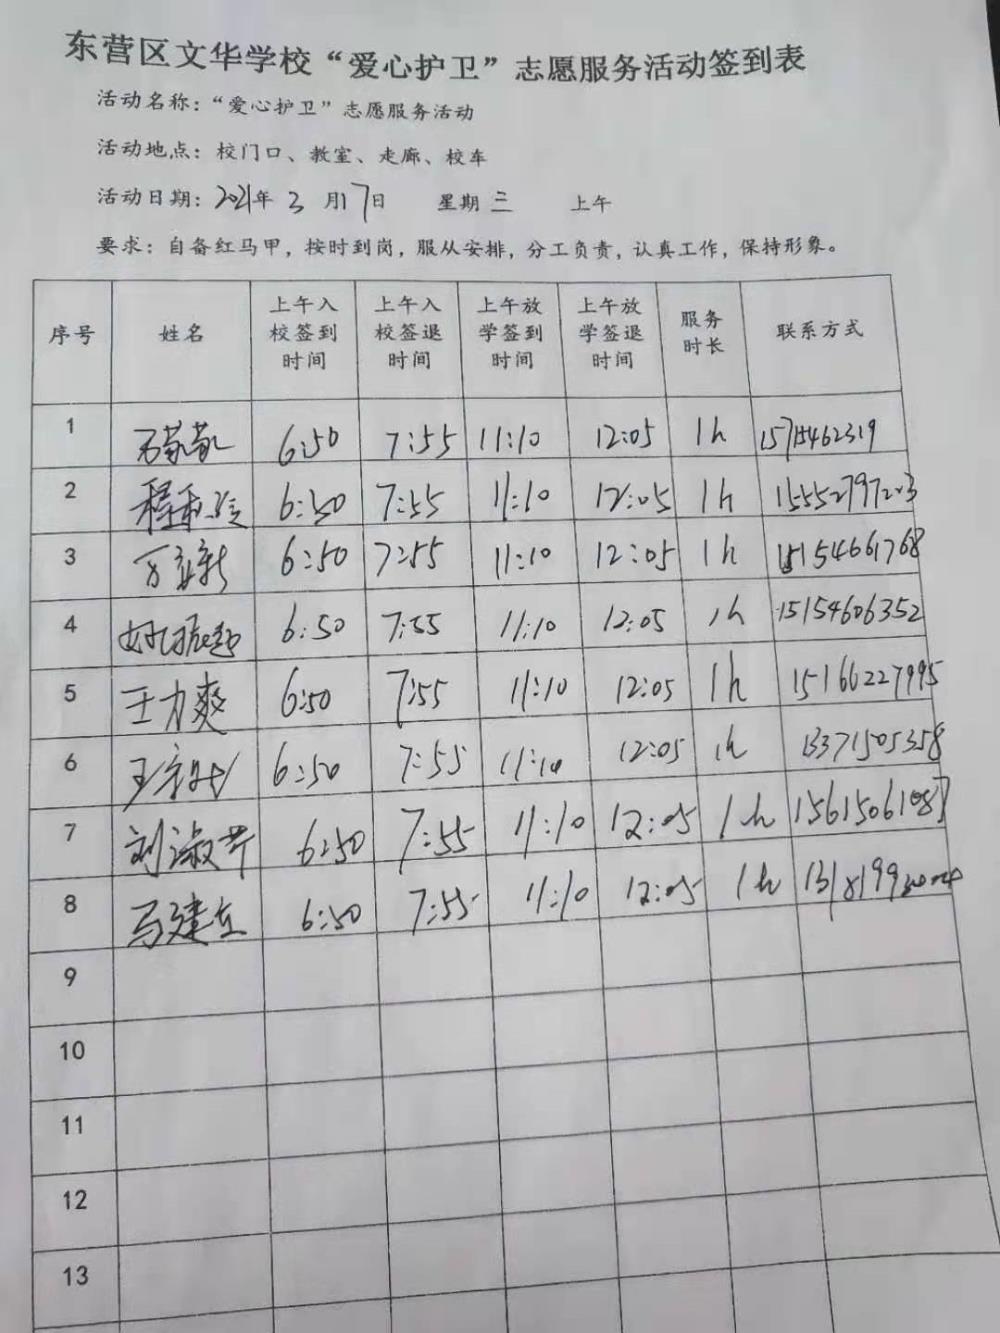 东营区文华学校“爱心护卫”志愿服务活动签到表
活动名称：“爱心护卫”志愿服务活动
活动地点：校门口、教室、走廊、校车
活动日期：2021年 3 月17日 星期 三 上午
要求：自备红马甲，按时到岗，服从安排，分工负责，认真工作，保持形象。
序号 姓名 上午入校签到时间 上午入校签退时间 上午放学签到时间 上午放学签退时间 服务时长 联系方式
1 6:50 7:55 11:10 12:05 1h
2 6:50 7:55 11:10 12:05 1h
3 6:50 7:55 11:10 12:05 1h 15154661768
4 6:50 7:55 11:10 12:05 1h 15154606352
5 王力爽 6:50 7:55 11:10 12:05 1h 15166227995
6 6:50 7:55 11:10 12:05 1h 13371505358
7 刘淑芹 6:50 7:55 11:10 12:05 1h
8 马建立 6:50 7:55 11:10 12:05 1h
9
10
11
12
13